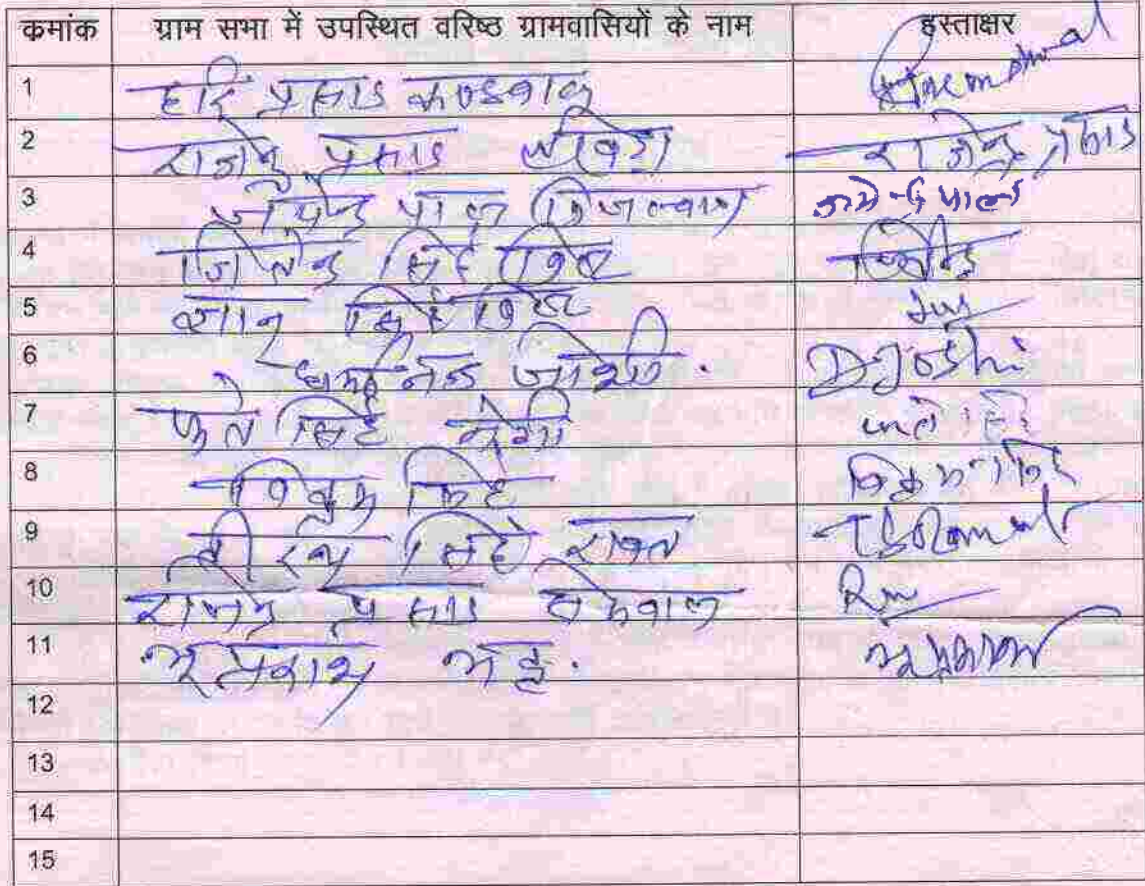 कमांक ग्राम सभा में उपस्थित वरिष्ठ ग्रामवासियों के नाम हस्ताक्षर
1 हरि प्रसाद कण्डवाल
2 राजेन्द्र प्रसाद राजेन्द्र प्रसाद
3 जयेन्द्र पाल बिजल्वाण जयेन्द्र पाल
4 जितेन्द्र सिंह बिष्ट
5 सिंह बिष्ट
6 धर्मानन्द जोशी . D Joshi
7 फते सिंह नेगी फते सिंह
8 विक्रम सिंह विक्रम सिंह
9 सिंह रावत T S Rawat
10 राजेन्द्र प्रसाद सेमवाल
11 भट्ट .
12
13
14
15